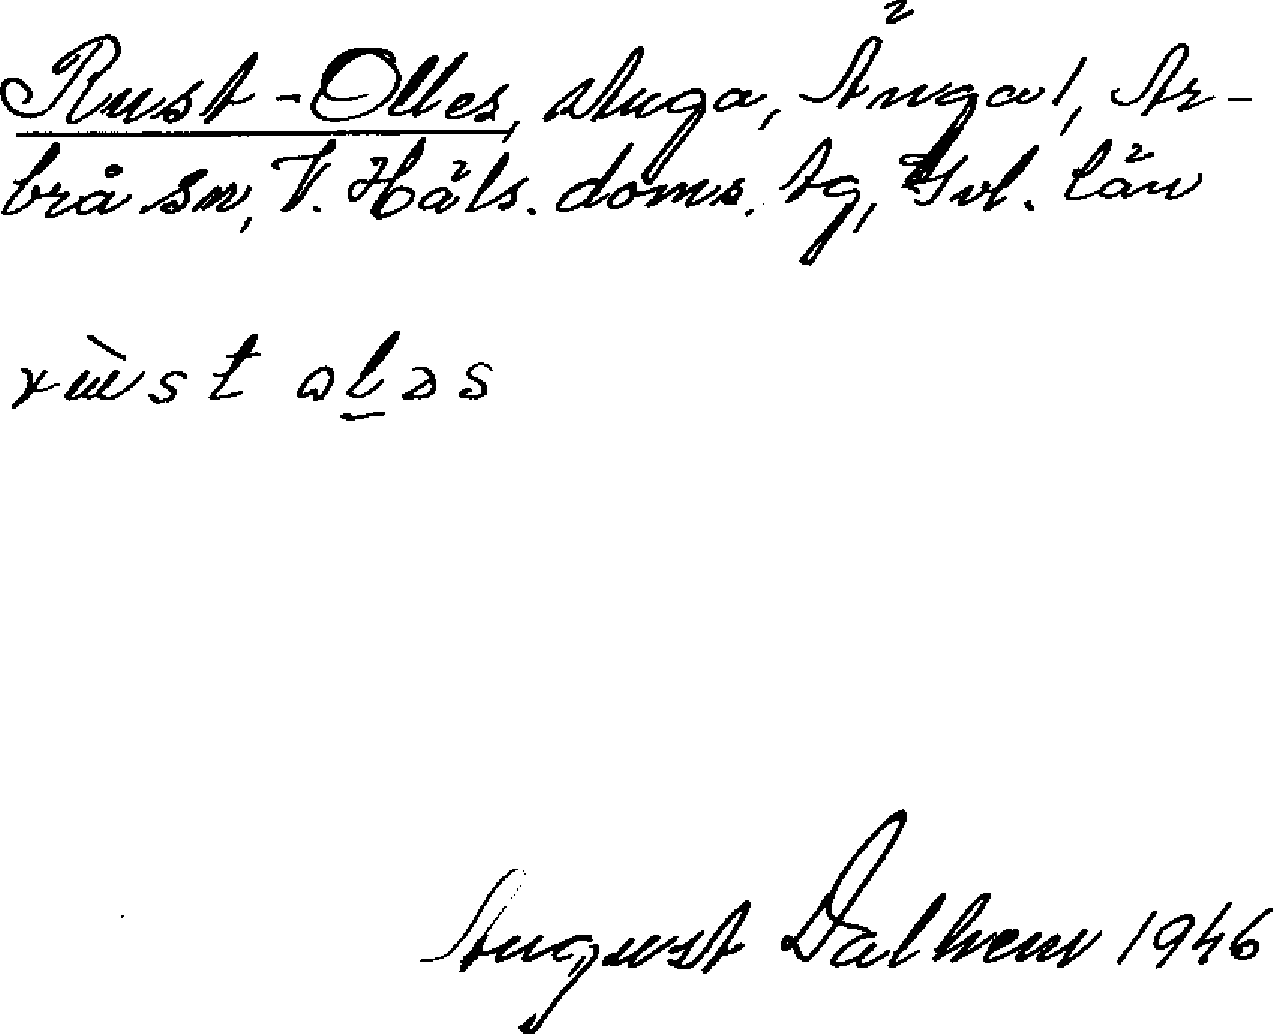 Rust-Olles, stuga, Änga 1, Ar-
brå sn, V. Häls. doms. tg, Gvl. län
rɯ̀st oləs
August Dalhem 1946